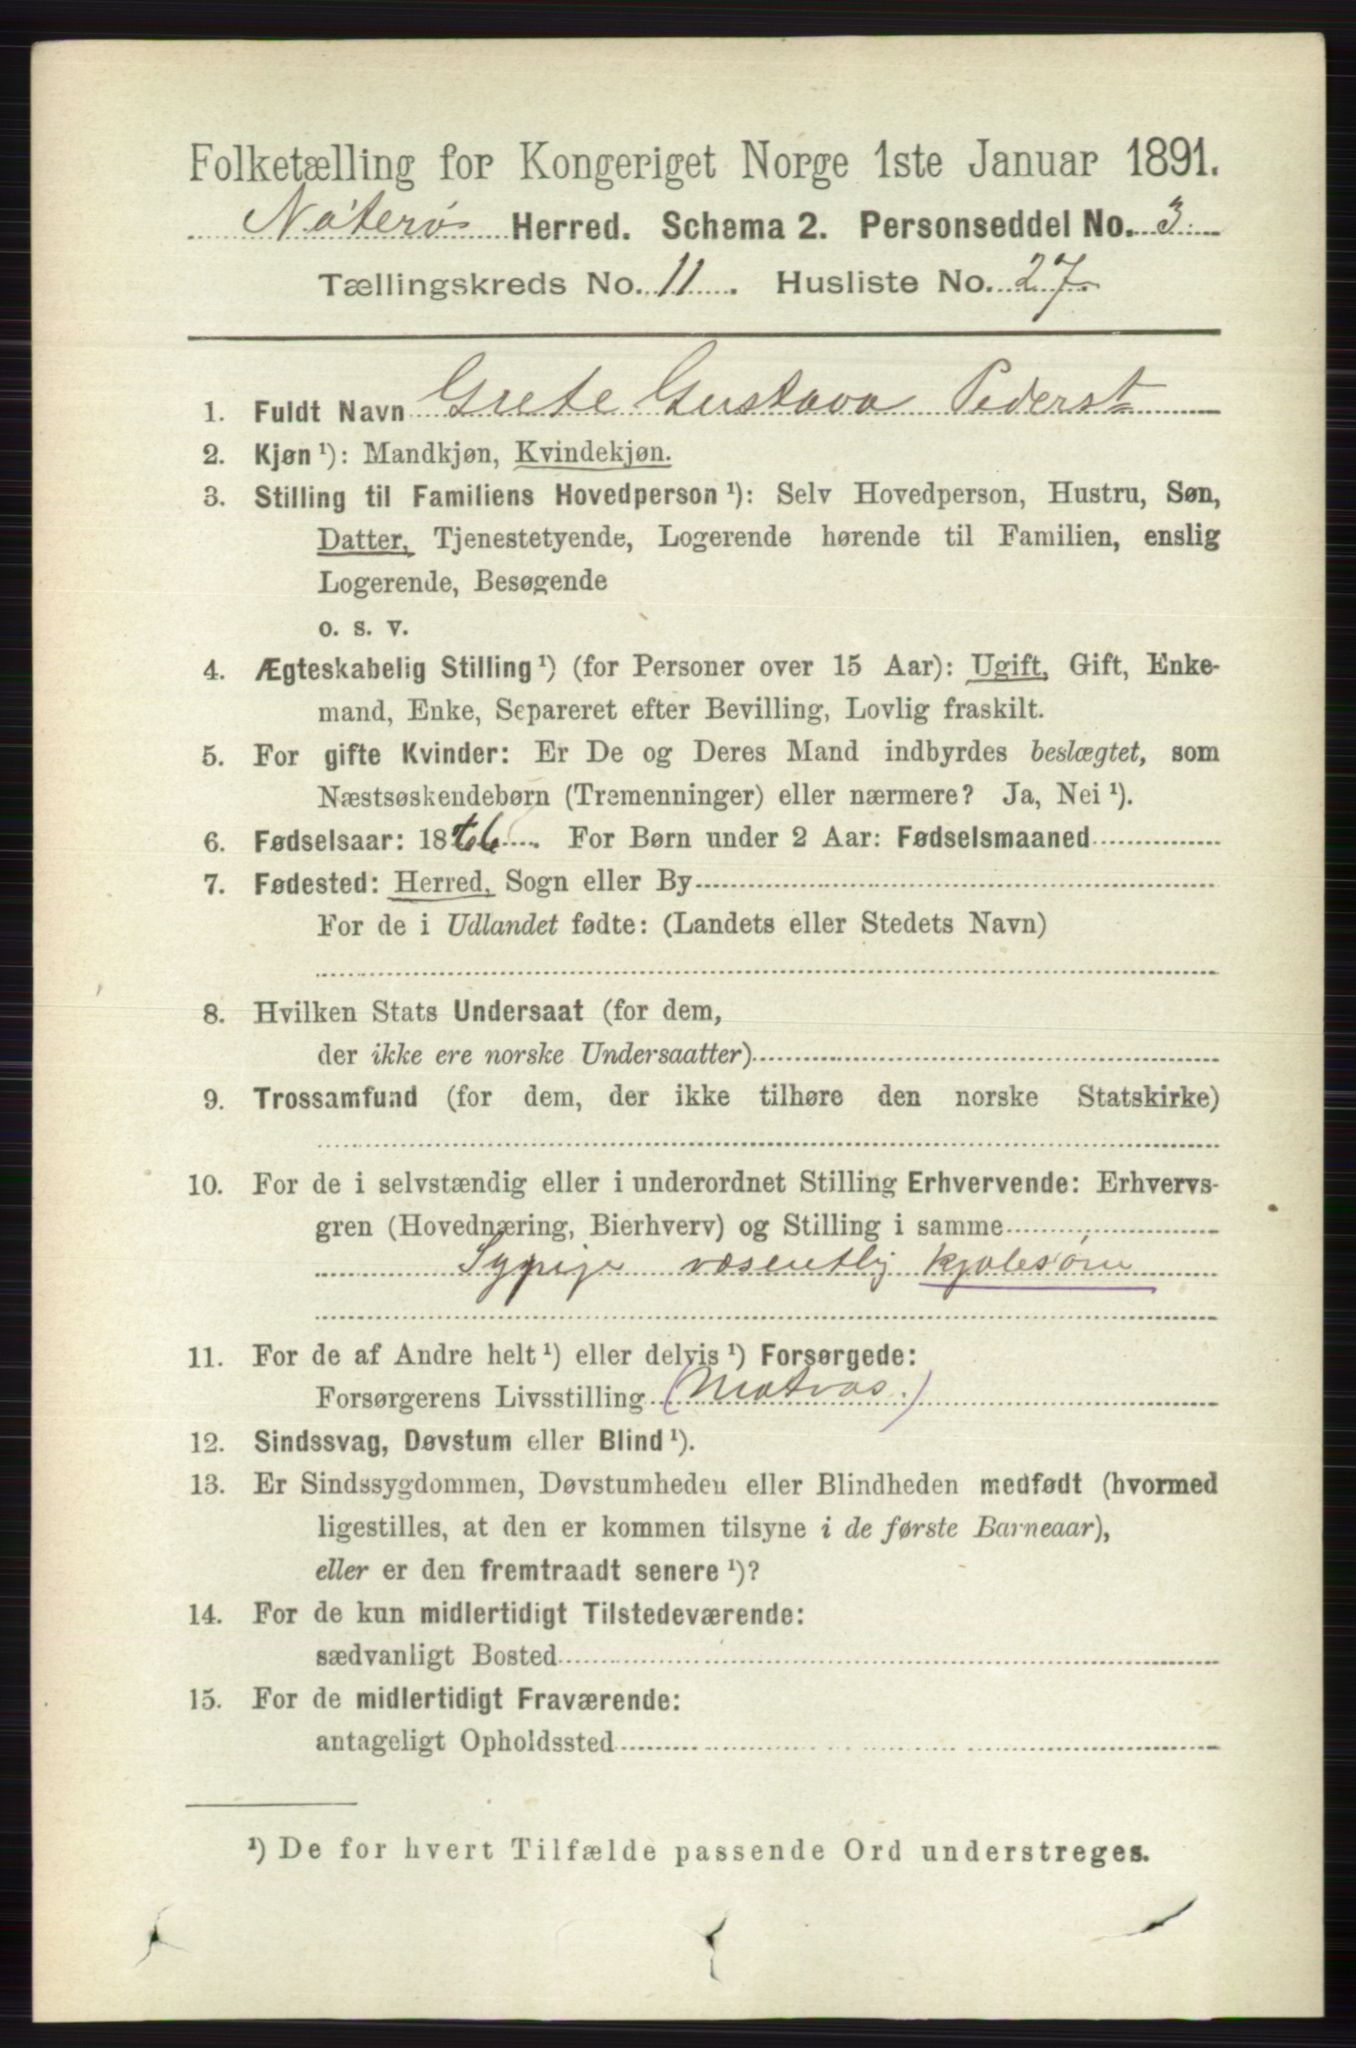 Folketælling for Kongeriget Norge 1ste Januar 1891.
Nøterø Herred. Schema 2. Personseddel No. 3
Tællingskreds No. 11. Husliste No. 27
1. Fuldt Navn Grete Gustava Pederst
2. Kjøn ¹): Mandkjøn, Kvindekjøn.
3. Stilling til Familiens Hovedperson ¹): Selv Hovedperson, Hustru, Søn,
Datter, Tjenestetyende, Logerende hørende til Familien, enslig
Logerende, Besøgende
o. s. v.
4. Ægteskabelig Stilling ¹) (for Personer over 15 Aar): Ugift, Gift, Enke-
mand, Enke, Separeret efter Bevilling, Lovlig fraskilt.
5. For gifte Kvinder: Er De og Deres Mand indbyrdes beslægtet, som
Næstsøskendebørn (Tremenninger) eller nærmere? Ja, Nei ¹).
6. Fødselsaar: 18 . For Børn under 2 Aar: Fødselsmaaned
7. Fødested: Herred, Sogn eller By
For de i Udlandet fødte: (Landets eller Stedets Navn)
8. Hvilken Stats Undersaat (for dem,
der ikke ere norske Undersaatter)
9. Trossamfund (for dem, der ikke tilhøre den norske Statskirke)
10. For de i selvstændig eller i underordnet Stilling Erhvervende: Erhvervs-
gren (Hovednæring, Bierhverv) og Stilling i samme
Sypige væsentlig kjolesøm
11. For de af Andre helt ¹) eller delvis ¹) Forsørgede:
Forsørgerens Livsstilling (Matros.)
12. Sindssvag, Døvstum eller Blind ¹).
13. Er Sindssygdommen, Døvstumheden eller Blindheden medfødt (hvormed
ligestilles, at den er kommen tilsyne i de første Barneaar),
eller er den fremtraadt senere ¹)?
14. For de kun midlertidigt Tilstedeværende:
sædvanligt Bosted
15. For de midlertidigt Fraværende:
antageligt Opholdssted
¹) De for hvert Tilfælde passende Ord understreges.